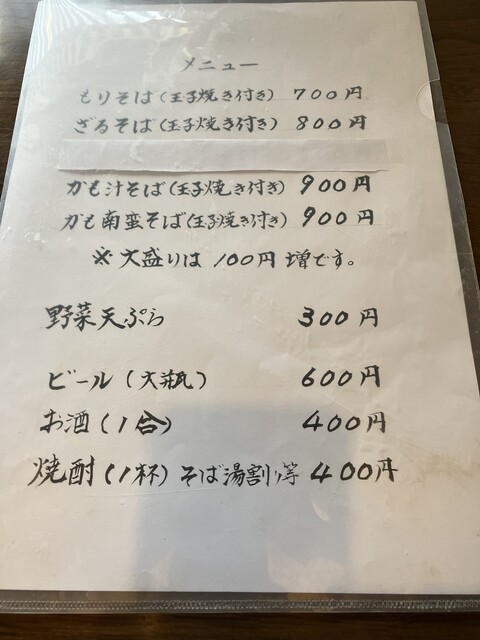 メニュー
もりそば(玉子焼き付き) 700円
ざるそば(玉子焼き付き) 800円
かも汁そば(玉子焼き付き) 900円
かも南蛮そば(玉子焼き付き) 900円
※大盛りは100円増です。
野菜天ぷら 300円
ビール(大瓶) 600円
お酒(1合) 400円
焼酎(1杯)そば湯割り等 400円